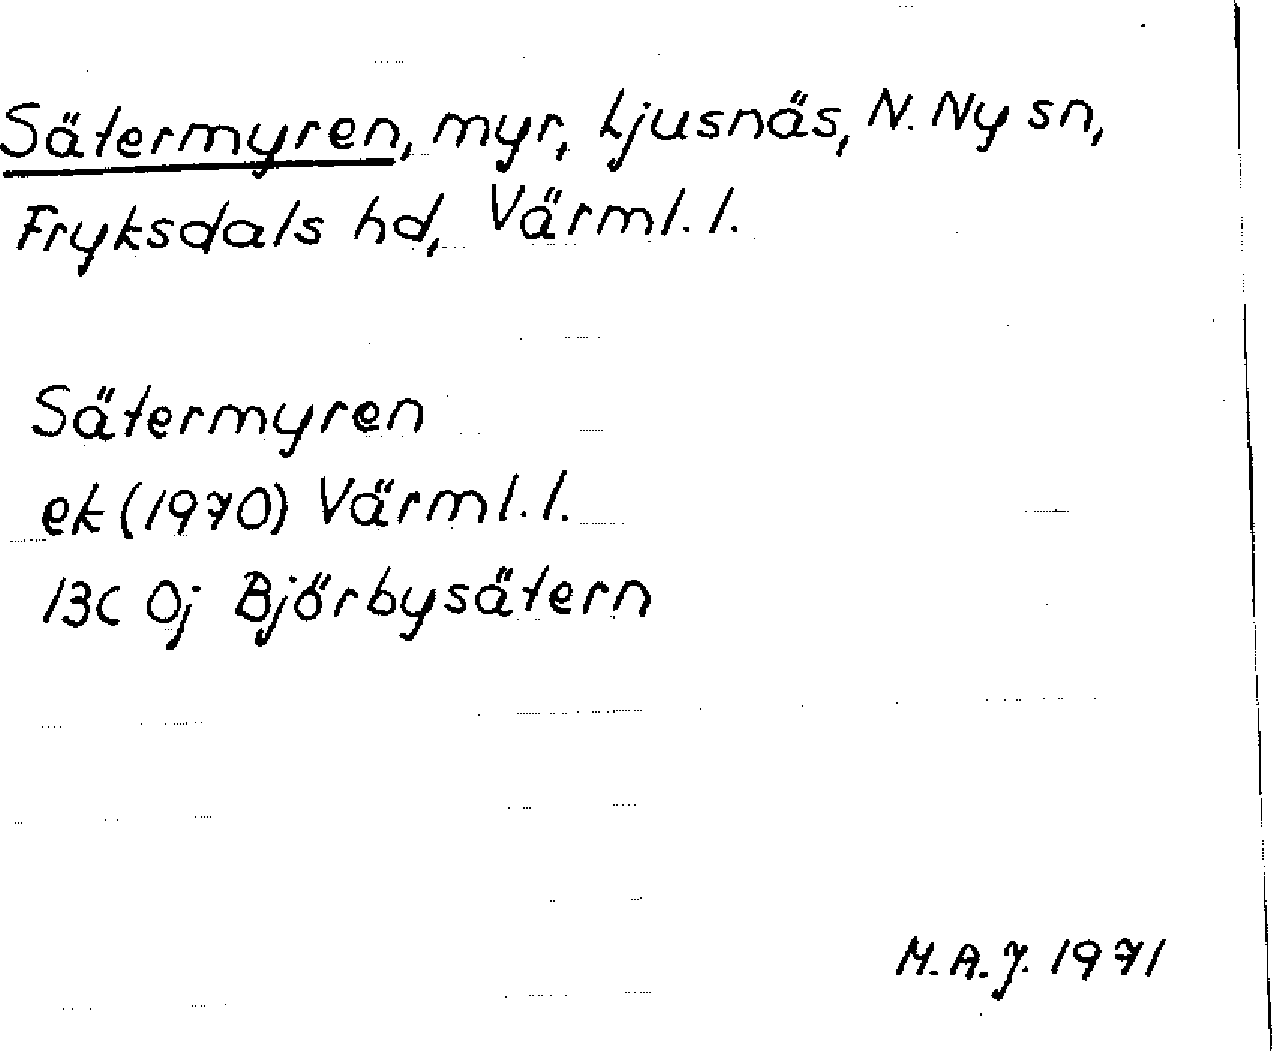 Sätermyren, myr, Ljusnäs, N. Ny sn,
Fryksdals hd, Värml. l.
Sätermyren
ek (1970) Värml. l.
13C 0j Björbysätern
M.A.J. 1971